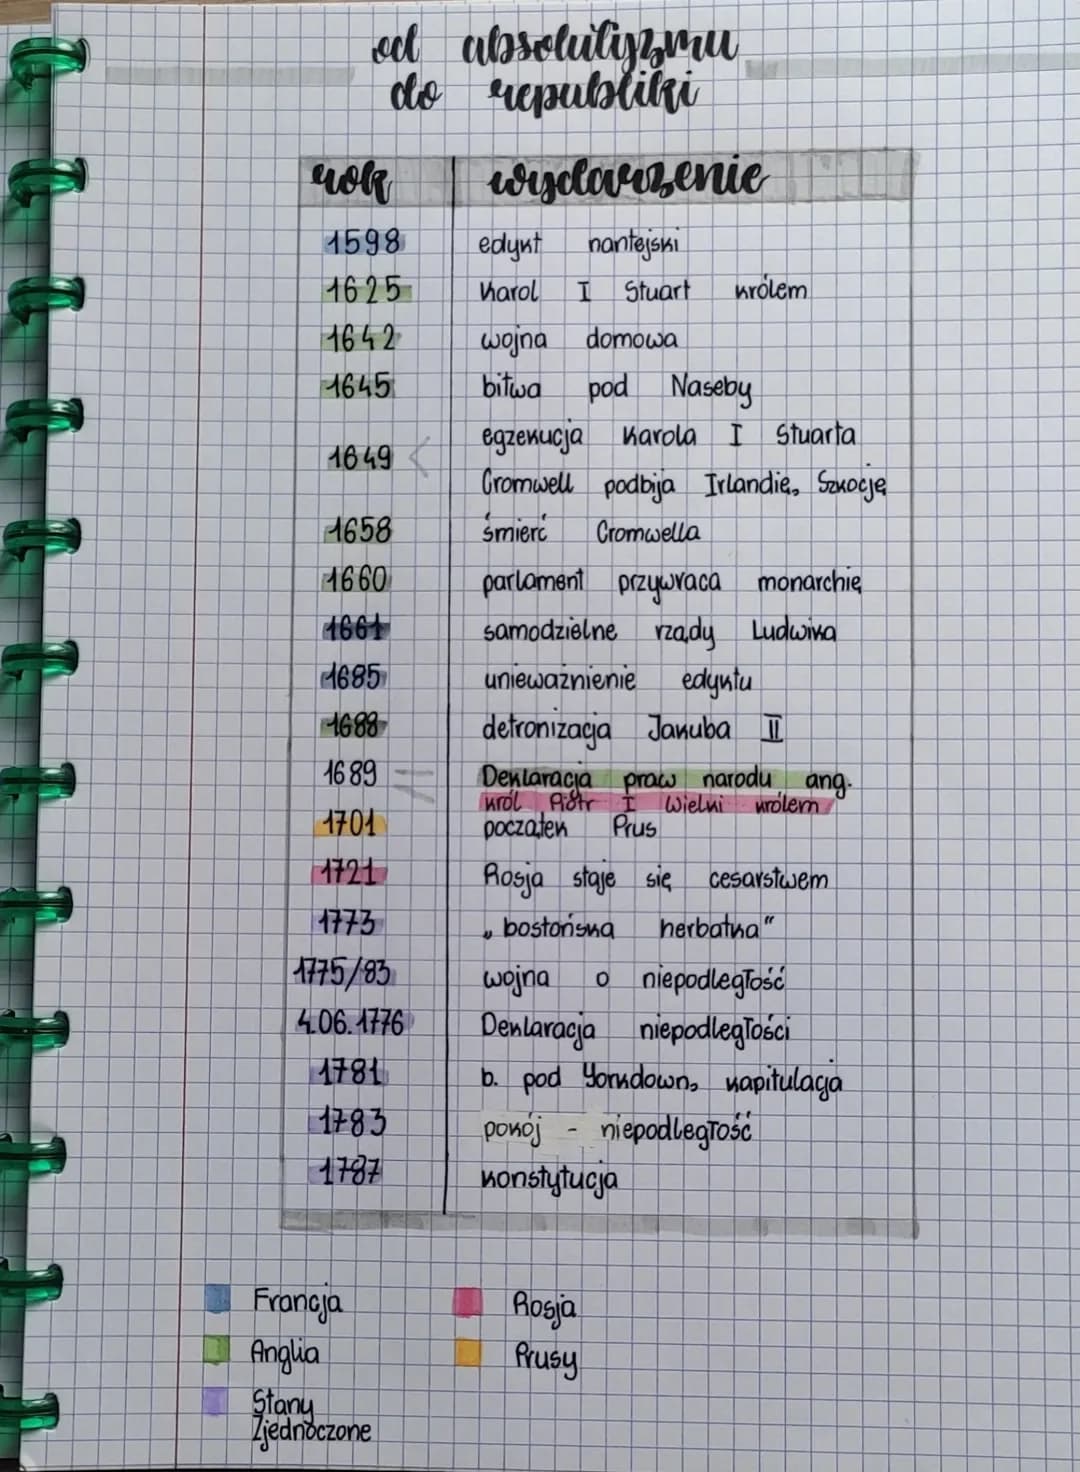 od absolutyzmu
do republiki
rok wydarzenie
1598 edykt nantejski
1625 Karol I Stuart królem
1642 wojna domowa
1645 bitwa pod Naseby
1649 < egzekucja Karola I Stuarta
Cromwell podbija Irlandię, Szkocję
1658 śmierć Cromwella
1660 parlament przywraca monarchię
1661 samodzielne rządy Ludwika
1685 unieważnienie edyktu
1688 detronizacja Jakuba II
1689 Deklaracja praw narodu ang.
król Piotr I Wielki królem
1701 początek Prus
1721 Rosja staje się cesarstwem
1773 „bostońska herbatka"
1775/83 wojna o niepodległość
4.06.1776 Deklaracja niepodległości
1781 b. pod Yorkdown, kapitulacja
1783 pokój - niepodległość
1787 konstytucja
Francja Rosja
Anglia Prusy
Stany
Zjednoczone